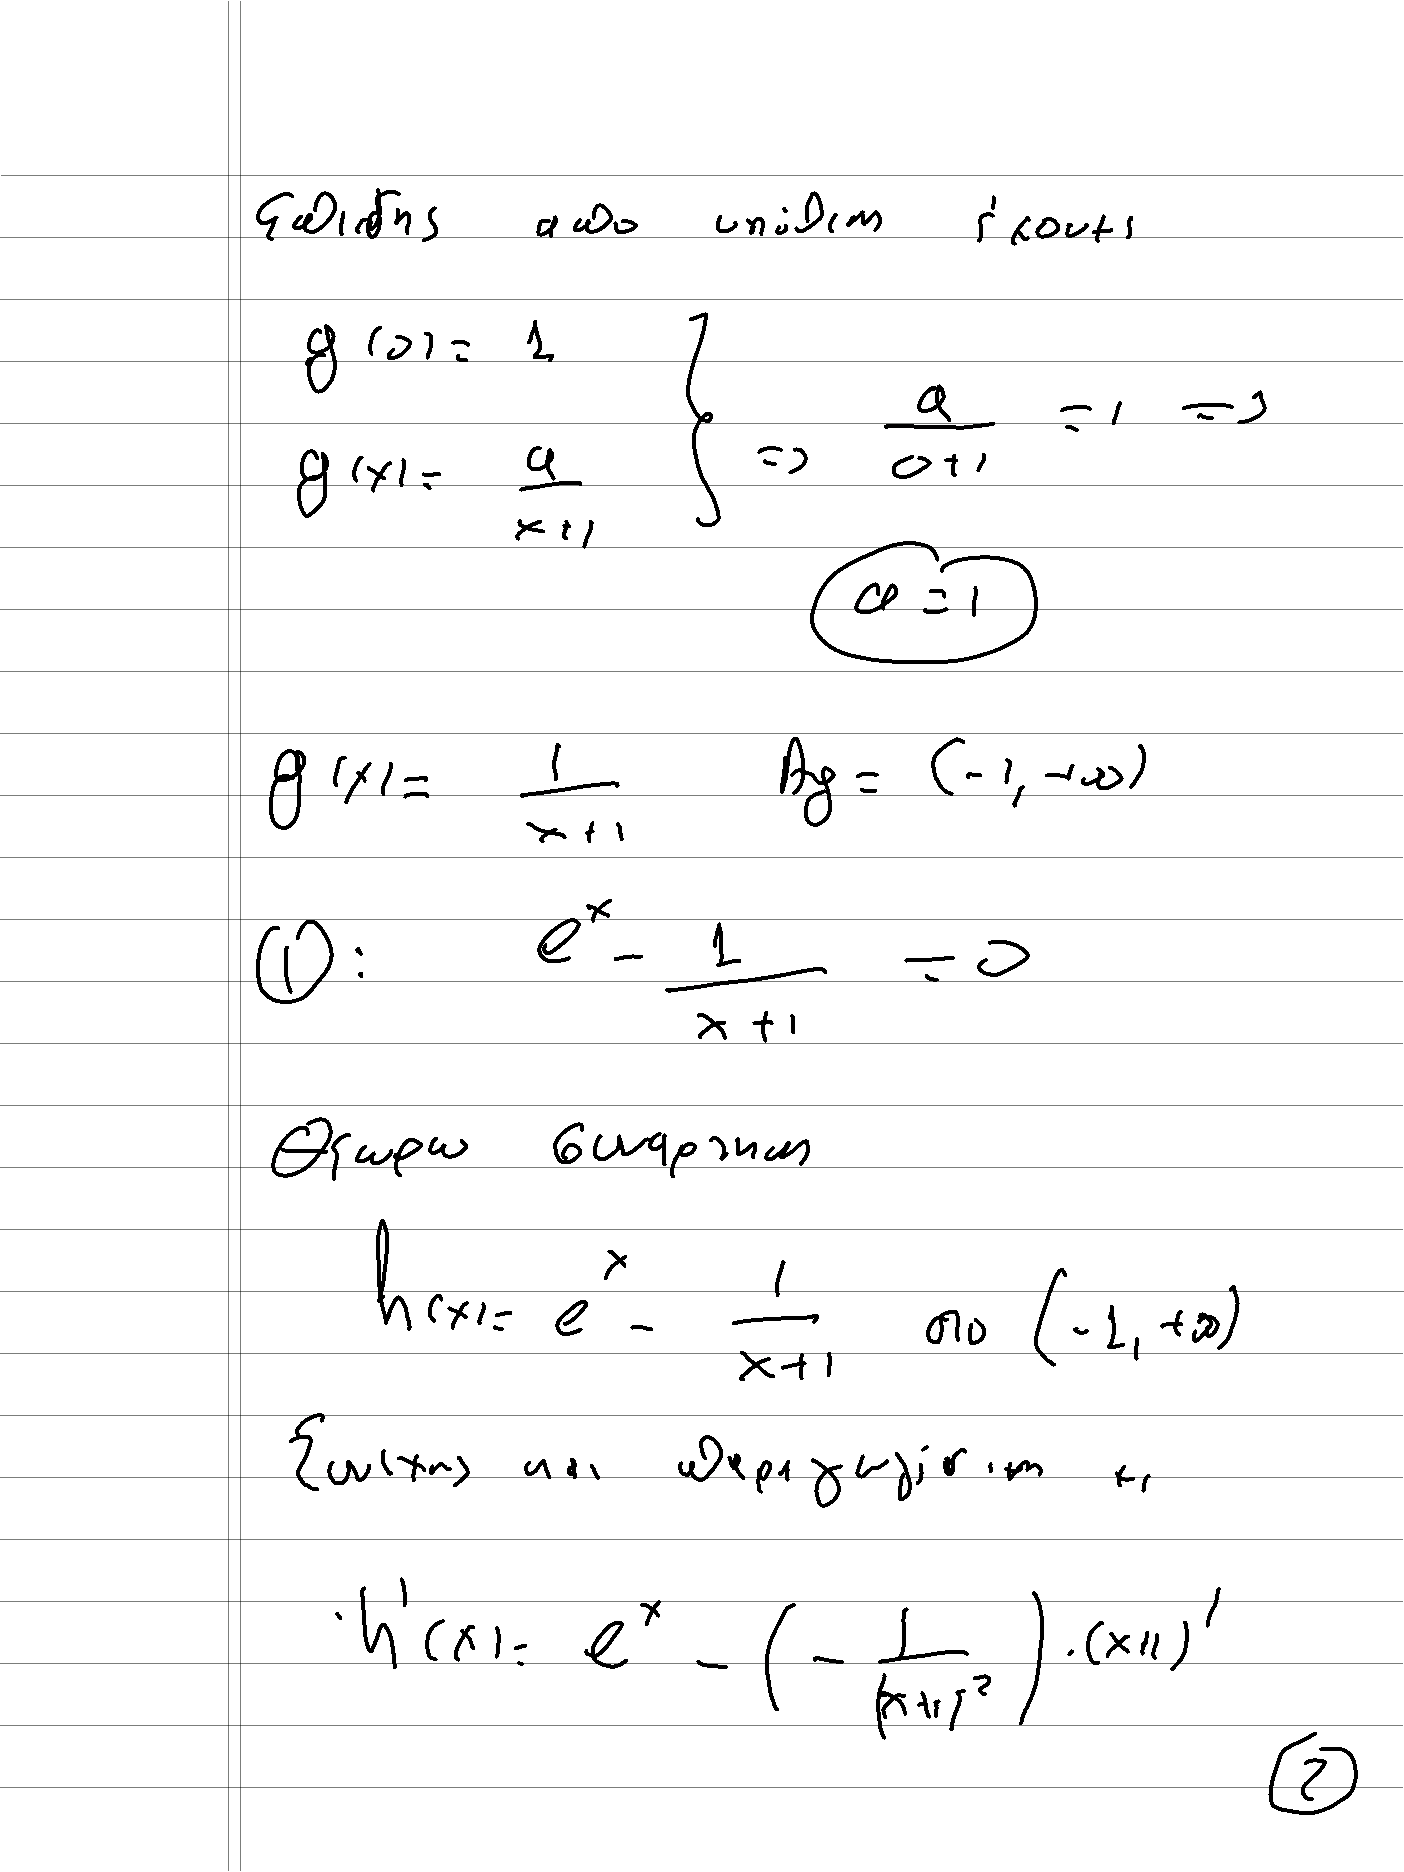 Επίσης από υπόθεση έχουμε
g(0) = 1
g(x) = a/(x+1) } => a/(0+1) = 1 =>
a = 1
g(x) = 1/(x+1) Ag = (-1, +∞)
①: e^x - 1/(x+1) = 0
Θεωρω συναρτηση
h(x) = e^x - 1/(x+1) στο (-1, +∞)
Συνεχης και παραγωγίσιμη με
h'(x) = e^x - (- 1/(x+1)²) · (x+1)'
②